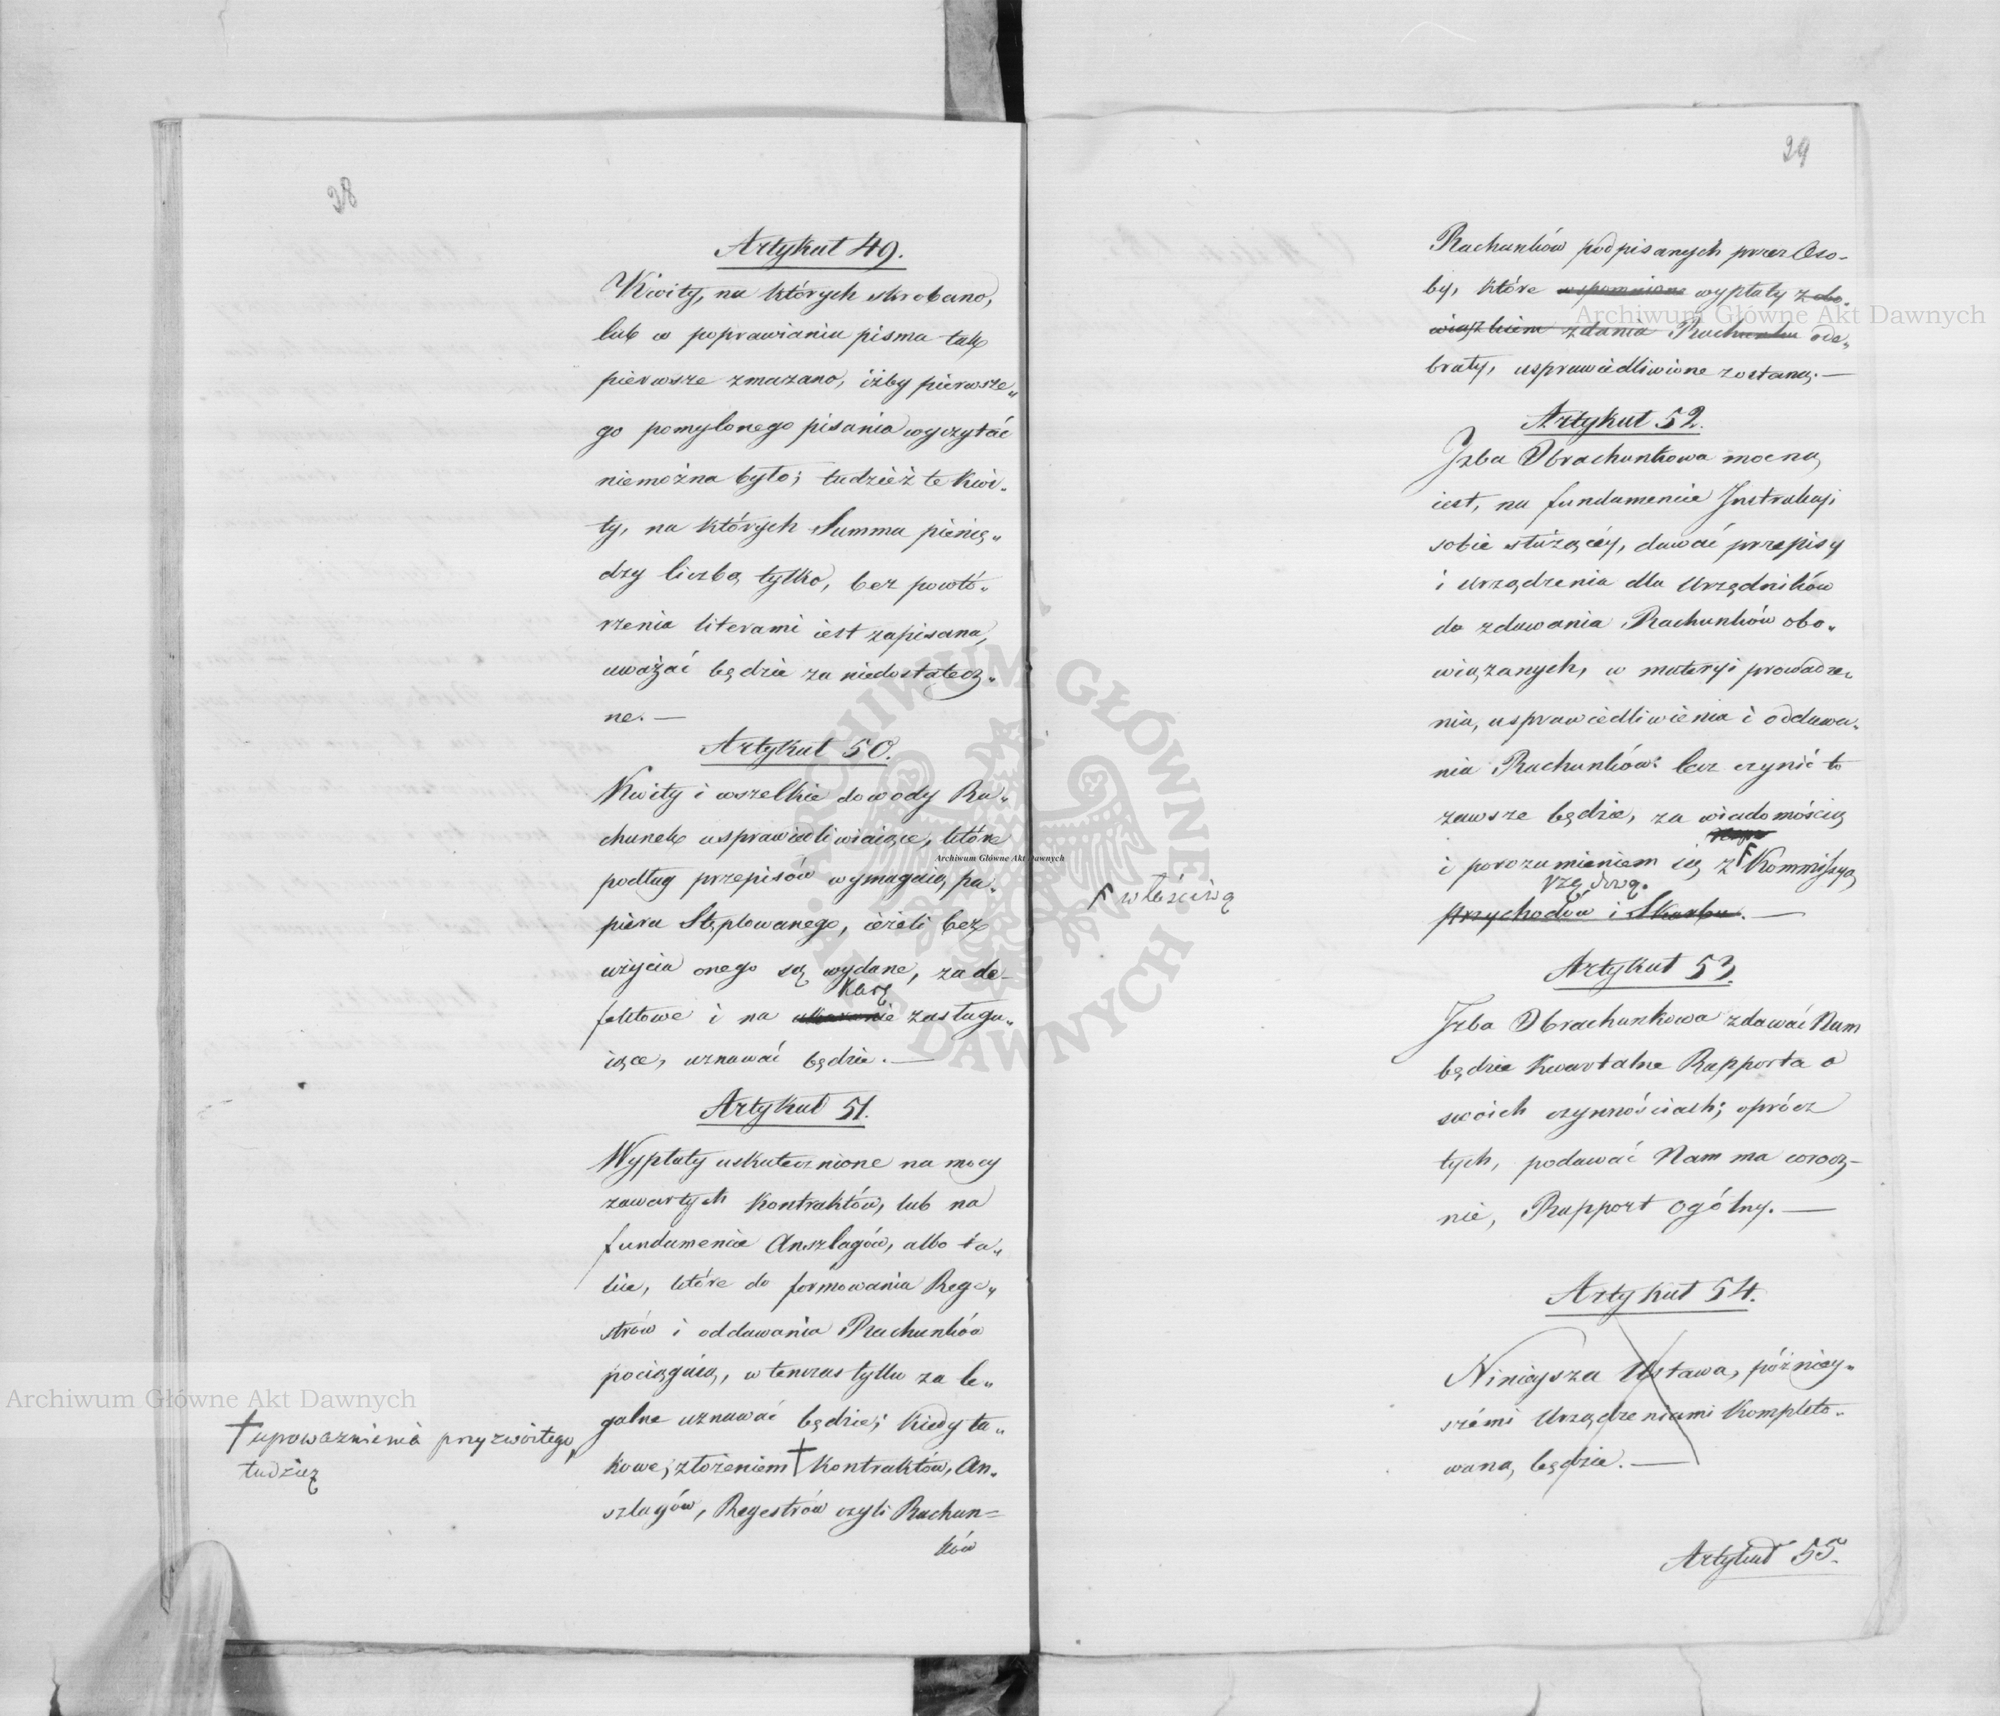 28
Artykuł 49.
Kwity, na których skrobano,
lub w poprawianiu pisma tak
pierwsze zmazano, iżby pierwsze„
go pomylonego pisania wyczytać
niemożna było; tudzież te kwi„
ty, na których Summa pienię„
dzy liczbą tylko, bez powtó„
rzenia literami iest zapisana,
uważać będzie za niedostatecz„
ne. —
Artykuł 50.
Kwity i wszelkie dowody Ra„
chunek usprawiedliwiaiące, które
podług przepisów wymagaią pa„
pieru Stęplowanego, ieżeli bez
użycia onego są wydane, za de-
karę
fektowe i na ukaranie zasługu„
iące, uznawać będzie. —
Artykuł 51.
Wypłaty uskutecznione na mocy
zawartych Kontraktów, lub na
fundamencie Anszlagów, albo ta„
kie, które do formowania Rege„
strów i oddawania Rachunków
pociągaią, w tenczas tylko za le„
galne uznawać będzie; kiedy ta„
kowe, złożeniem † Kontraktów, An„
szlagów, Regestrów czyli Rachun=
ków
† upoważnienia przyzwoitego,
tudzież
29
Rachunków podpisanych przez Oso„
by, które wspomnione wypłaty z obo„
wiązkiem zdania Rachunku ode„
brały, usprawiedliwione zostaną. —
Artykuł 52.
Izba Obrachunkowa mocną
iest, na fundamencie Instrukcyi
sobie służącéy, dawać przepisy
i urządzenia dla Urzędników
do zdawania Rachunków obo„
wiązanych, w materyi prowadze„
nia, usprawiedliwienia i oddawa„
nia Rachunków: lecz czynić to
zawsze będzie, za wiadomością
i porozumieniem się z F Kommissyą
rządową.
przychodów i Skarbu. —
F właściwą
Artykuł 53.
Izba Obrachunkowa zdawać Nam
będzie Kwartalne Rapporta o
swoich czynnościach; oprócz
tych, podawać Nam ma corocz-
nie, Rapport ogólny. —
Artykuł 54.
Ninieysza Ustawa, późniey„
szémi Urządzeniami kompleto„
waną będzie. —
Artykuł 55.
Archiwum Główne Akt Dawnych
Archiwum Główne Akt Dawnych
Archiwum Główne Akt Dawnych
ARCHIWUM GŁÓWNE AKT DAWNYCH